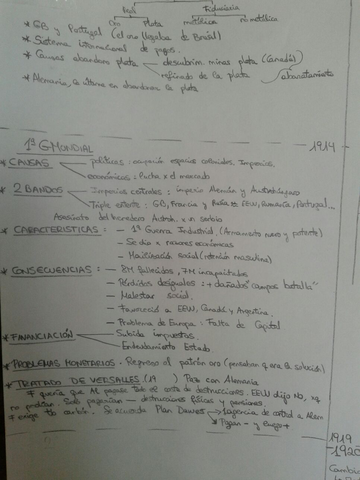 Fiduciaria
Oro Plata metálica no metálica
* GB y Portugal (el oro llegaba de Brasil)
* Sistema internacional de pagos.
* Causas abandono plata descubrim. minas plata (Canadá)
refinado de la plata abaratamiento
* Alemania, la última en abandonar la plata
1ª G MUNDIAL 1914
* CAUSAS políticas: espacios coloniales. Imperios.
económicas: lucha x el mercado
* 2 BANDOS Imperios centrales: imperio Alemán y Austrohúngaro
Triple entente: GB, Francia y Rusia EEUU, Rumanía, Portugal...
Asesinato del heredero Austria x un serbio
* CARACTERISTICAS: - 1ª Guerra Industrial (Armamento nuevo y potente)
- Se dio x razones económicas
- Movilización social (retención masculina)
* CONSECUENCIAS: - 8M fallecidos, 7M incapacitados
- Pérdidas desiguales: + dañados "campos batalla"
- Malestar social.
- Favoreció a EEUU, Canadá y Argentina.
- Problema de Europa: Falta de Capital
* FINANCIACIÓN Subida impuestos.
Endeudamiento Estado
* PROBLEMAS MONETARIOS. Regreso al patrón oro (pensaban q era la solución)
* TRATADO DE VERSALLES (19 ) Paz con Alemania
F quería que Al pagase todo el coste de destrucciones. EEUU dijo No, xq
no podían. Solo pagarían destrucciones físicas y pensiones.
F exige Se acuerda Plan Dawes de capital a Alem
Pagan - y
1919
1920
Cambio